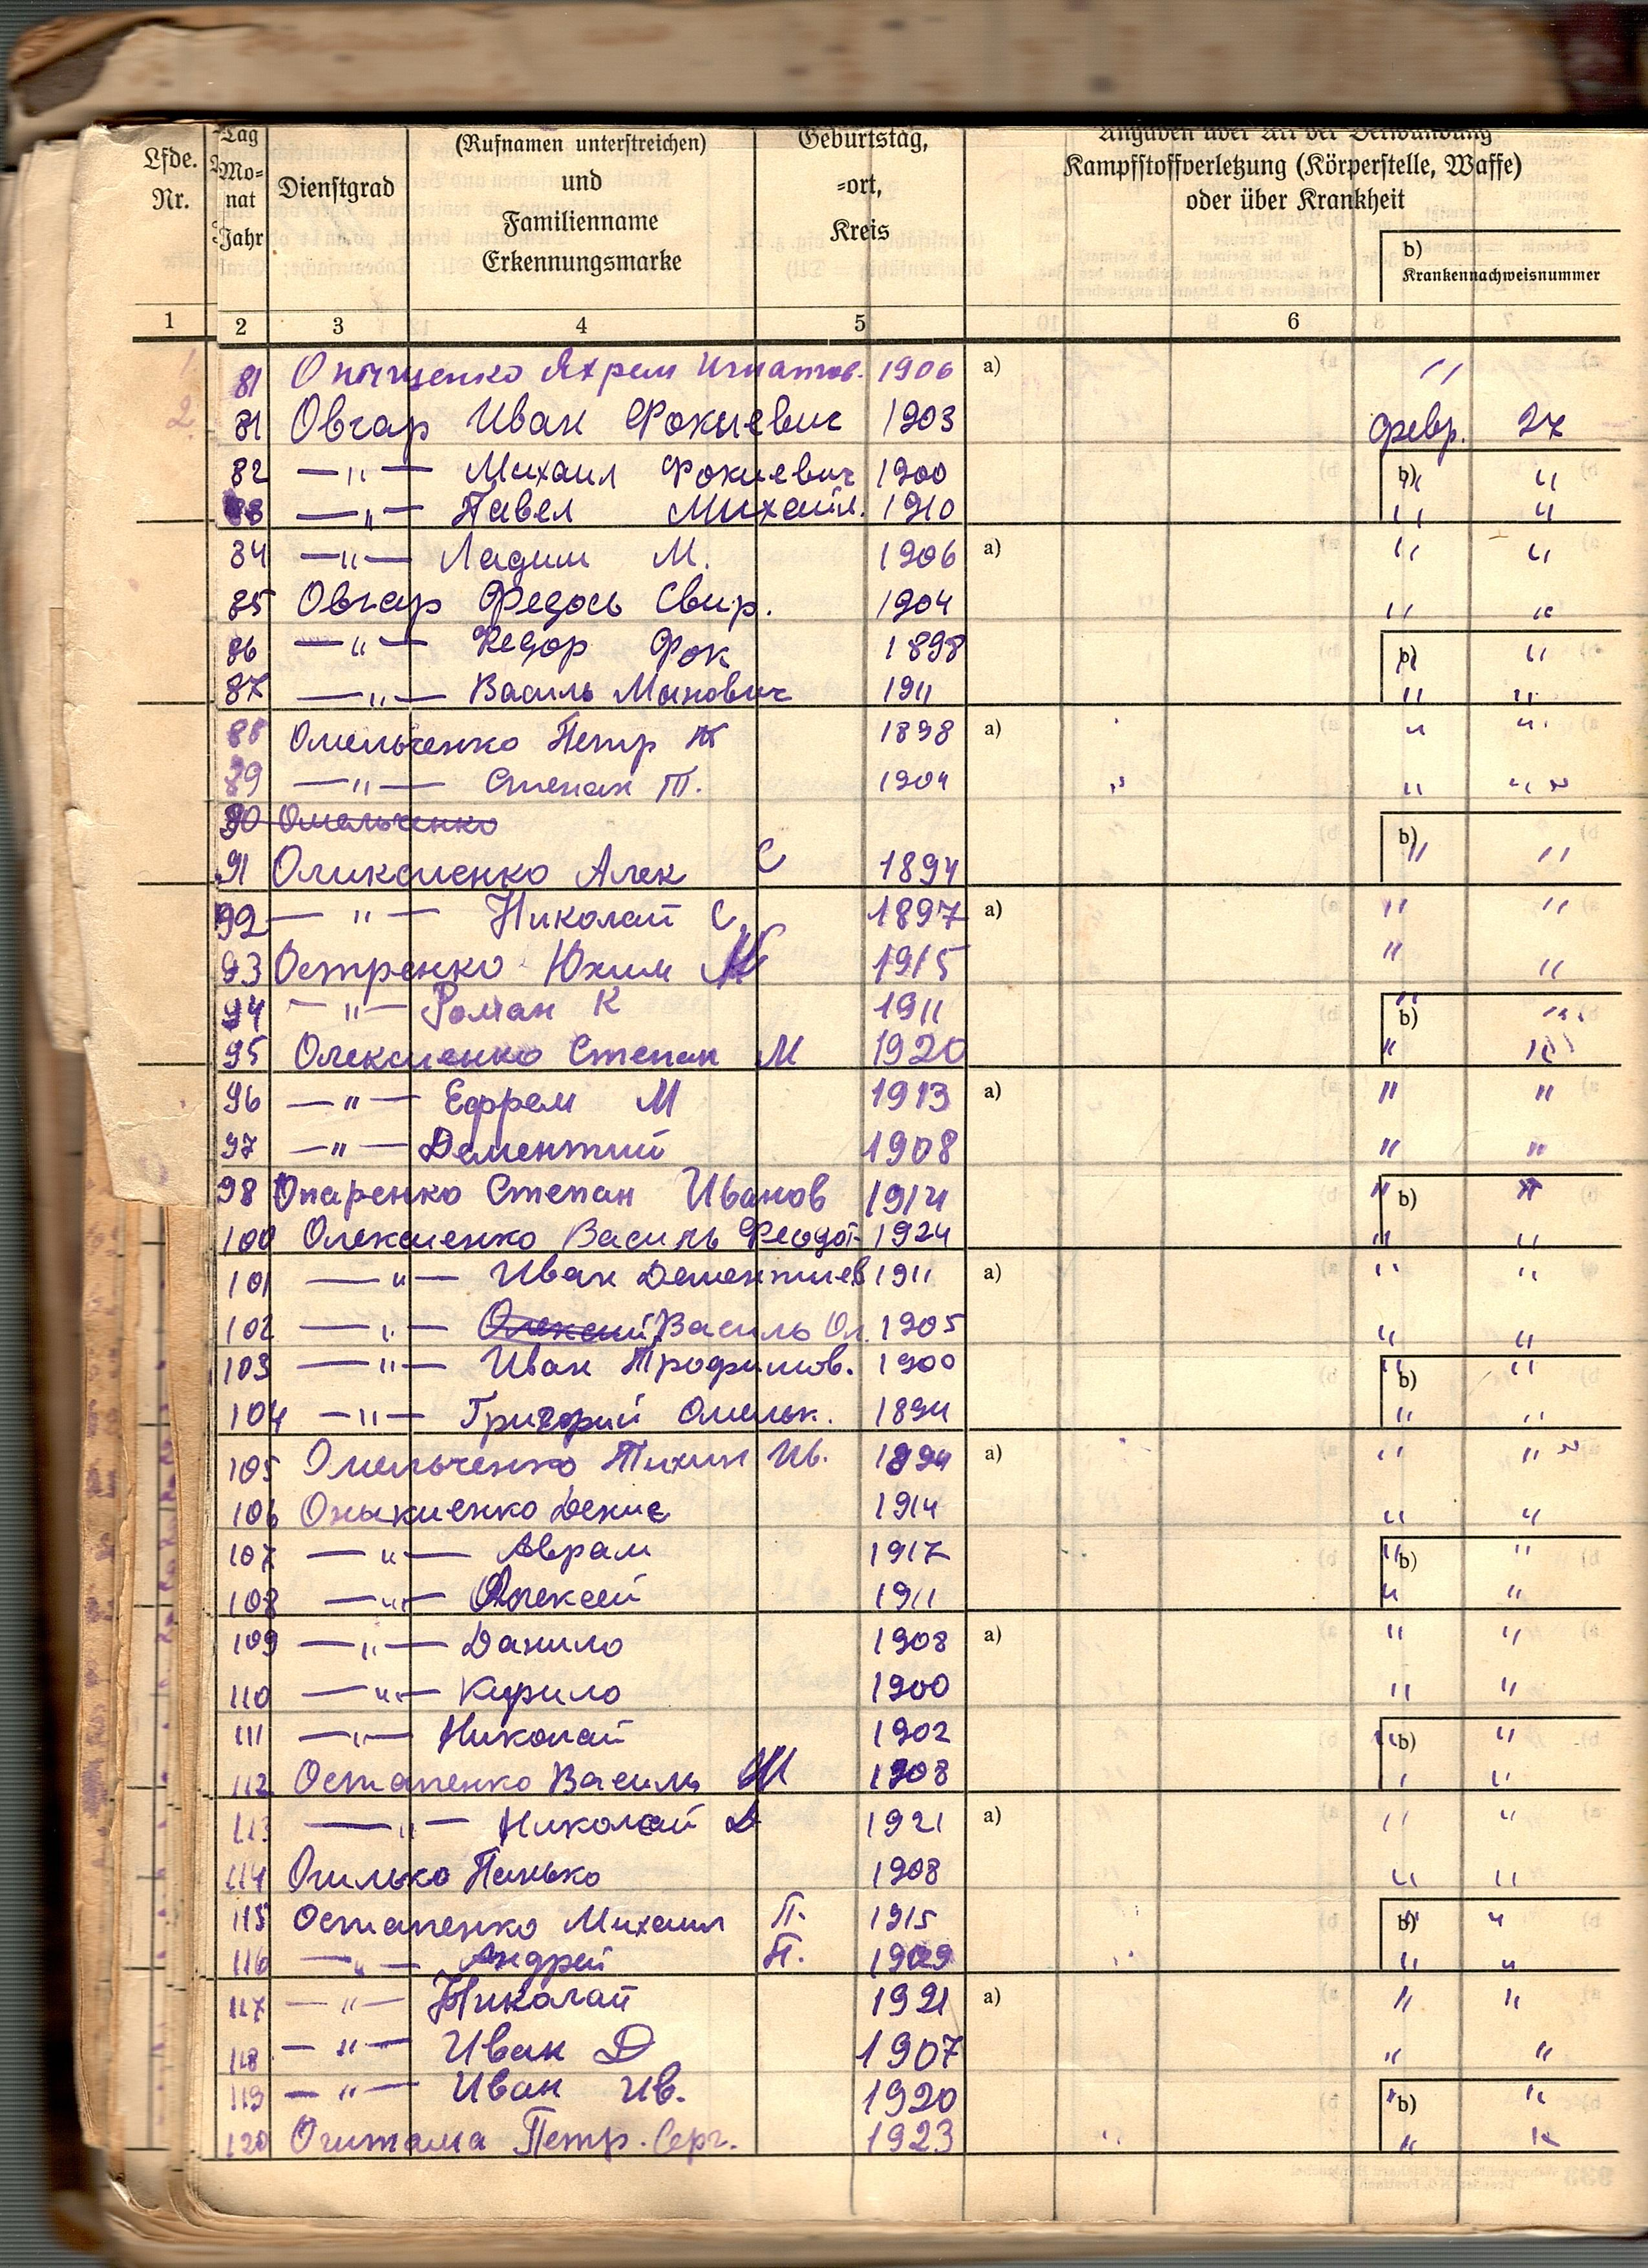 Lfde. Nr.
Tag Monat Jahr
Dienstgrad
(Rufnamen unterstreichen)
und
Familienname
Erkennungsmarke
Geburtstag,
=ort,
Kreis
Angaben über Art der Verwundung
Kampfstoffverletzung (Körperstelle, Waffe)
oder über Krankheit
b)
Krankennachweisnummer
1 2 3 4 5 6
1 81 Игнатов. 1906 a) "
2 81 Овчар Иван Фокиевич 1903 февр. 27
82 —"— Михаил Фокиевич 1900 b) " "
83 —"— Павел Михаил. 1910 " "
84 —"— Ладим М. 1906 a) " "
85 Овчар Федось Свир. 1904 " "
86 —"— Федор Фок 1898 b) " "
87 —"— Василь Минович 1911 " "
88 Омельченко Петр 1898 a) " "
89 —"— Степан Т. 1904 " " "
90 Омельченко
91 Оликсиенко Алек С 1894 b) " "
92 —"— Николай С. 1897 a) " "
93 Остренко Юхим 1915 " "
94 —"— Роман К 1911 b) " "
95 Олексиенко Степан М 1920 " "
96 —"— Ефрем М 1913 a) " "
97 —"— Дементий 1908 " "
98 Опаренко Степан Иванов 1914 b) " "
100 Олексиенко Василь Феодот. 1924 " "
101 —"— Иван Дементиев 1911 a) " "
102 —"— Олексий Василь Ол. 1905 " "
103 —"— Иван Трофимов. 1900 b) " "
104 —"— Григорий Омельк. 1894 " "
105 Омельченко Тихин Ив. 1894 a) " "
106 Оныкиенко Денис 1914 " "
107 —"— Аврам 1917 b) " "
108 —"— Олексей 1911 " "
109 —"— Данило 1908 a) " "
110 —"— Кирило 1900 " "
111 —"— Николай 1902 b) " "
112 Остапенко Василь 1908 " "
113 —"— Николай Д 1921 a) " "
114 Огилько Панько 1908 " "
115 Остапенко Михаил П. 1915 b) " "
116 —"— Андрей П. 1909 " "
117 —"— Николай 1921 a) " "
118 —"— Иван Д 1907 " "
119 —"— Иван Ив. 1920 b) " "
120 Петр. Серг. 1923 " "